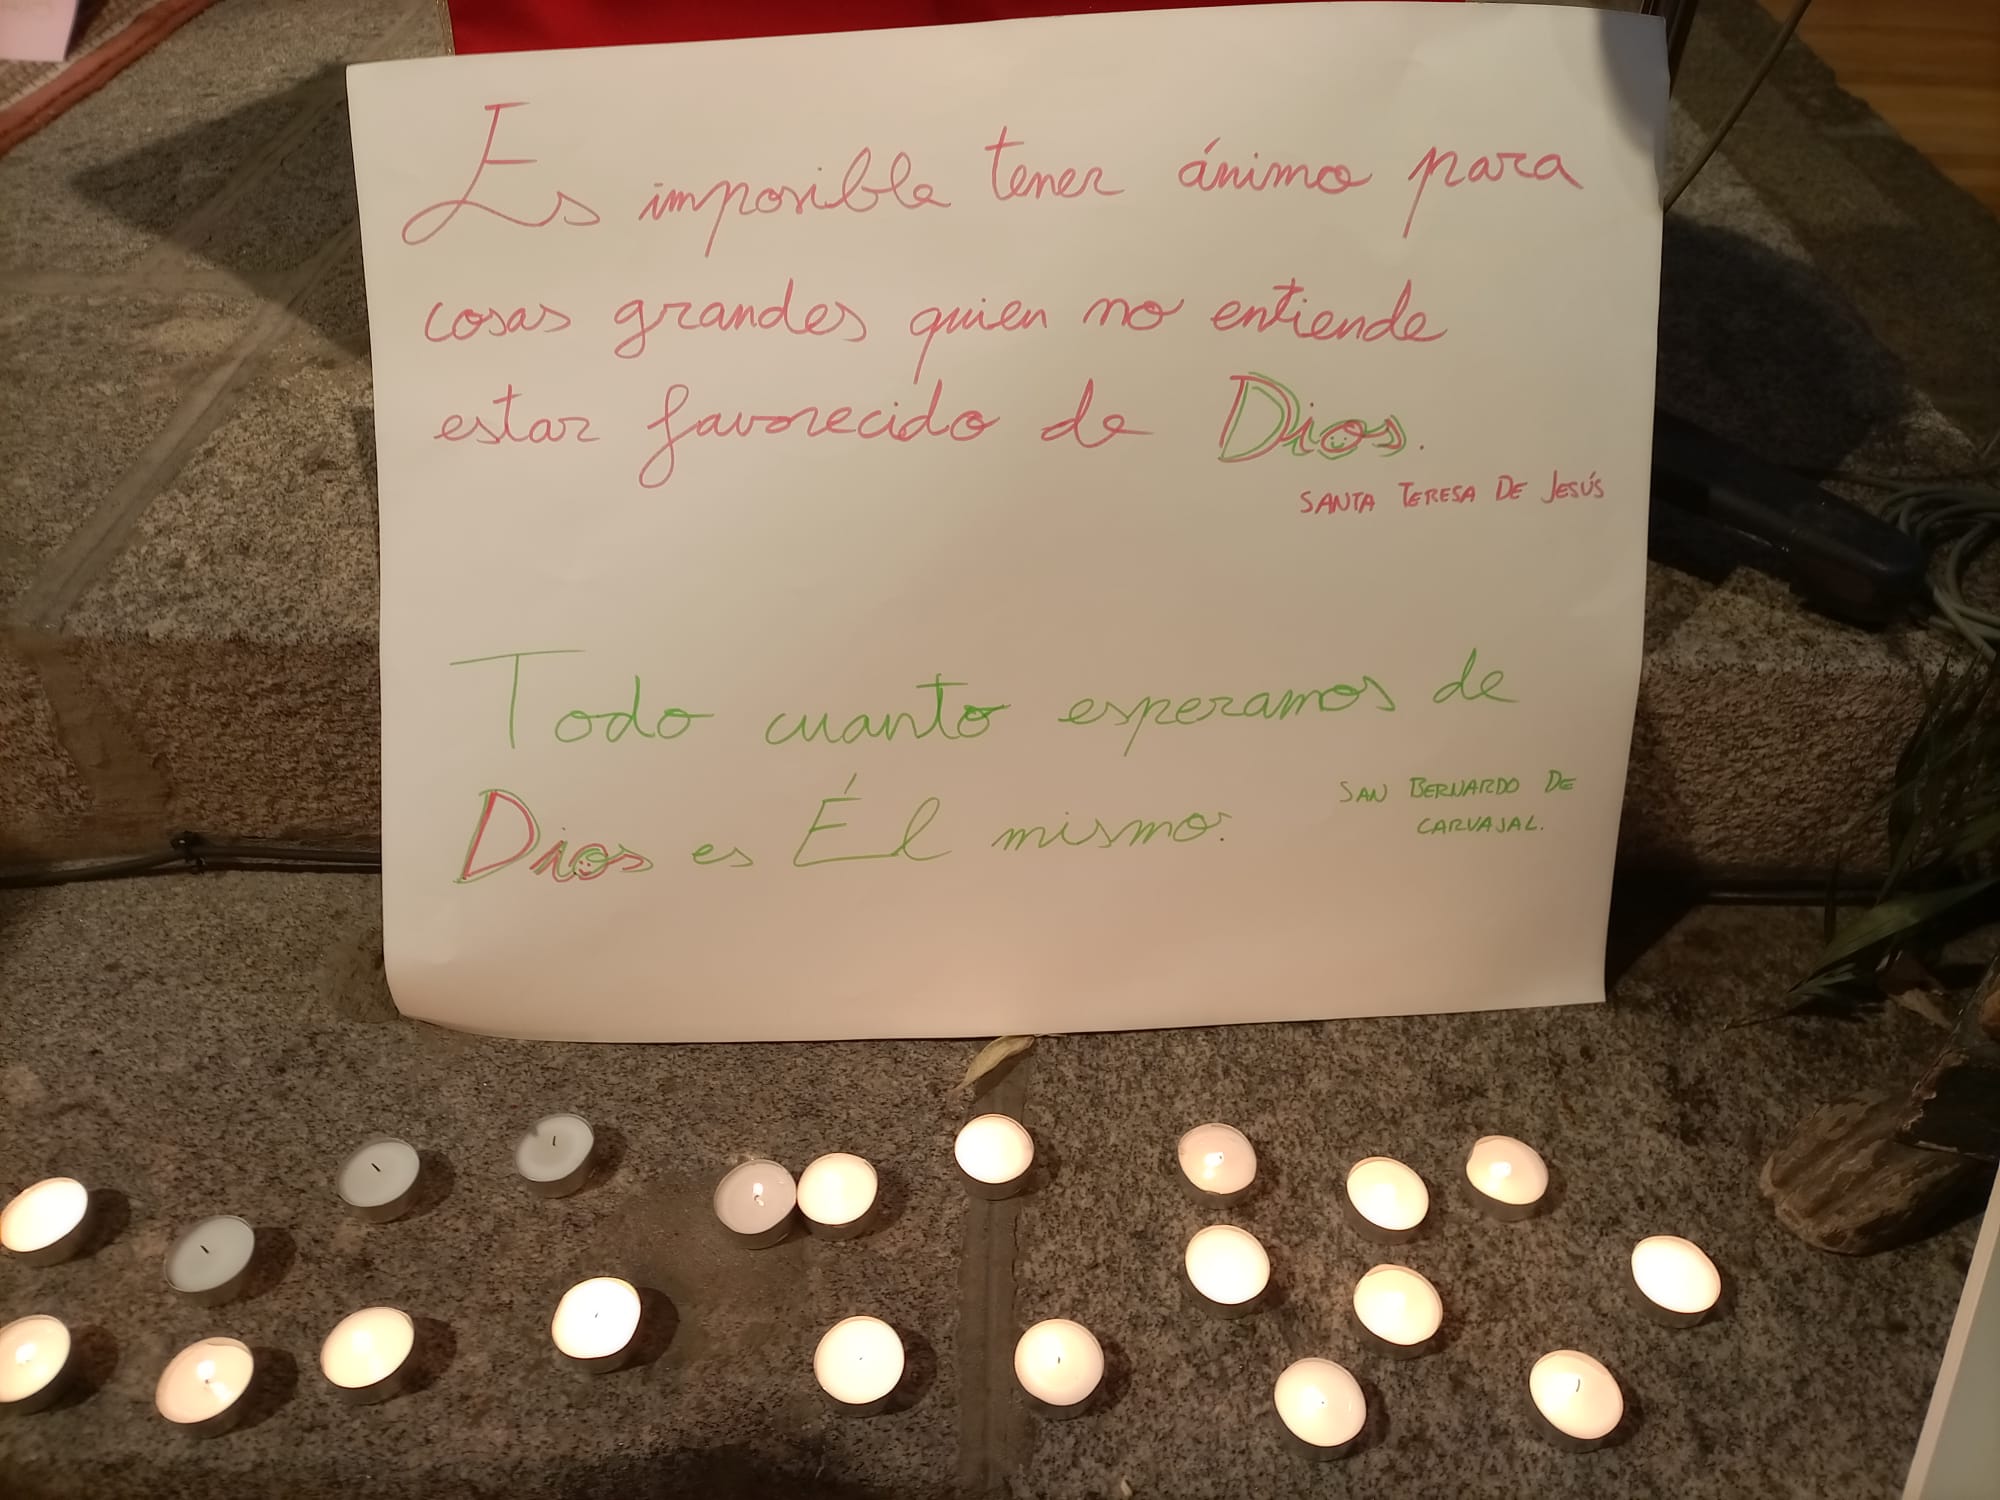 Es imposible tener ánimo para
cosas grandes quien no entiende
estar favorecido de Dios.
SANTA TERESA DE JESÚS
Todo cuanto esperamos de
Dios es Él mismo.
SAN BERNARDO DE
CARVAJAL.